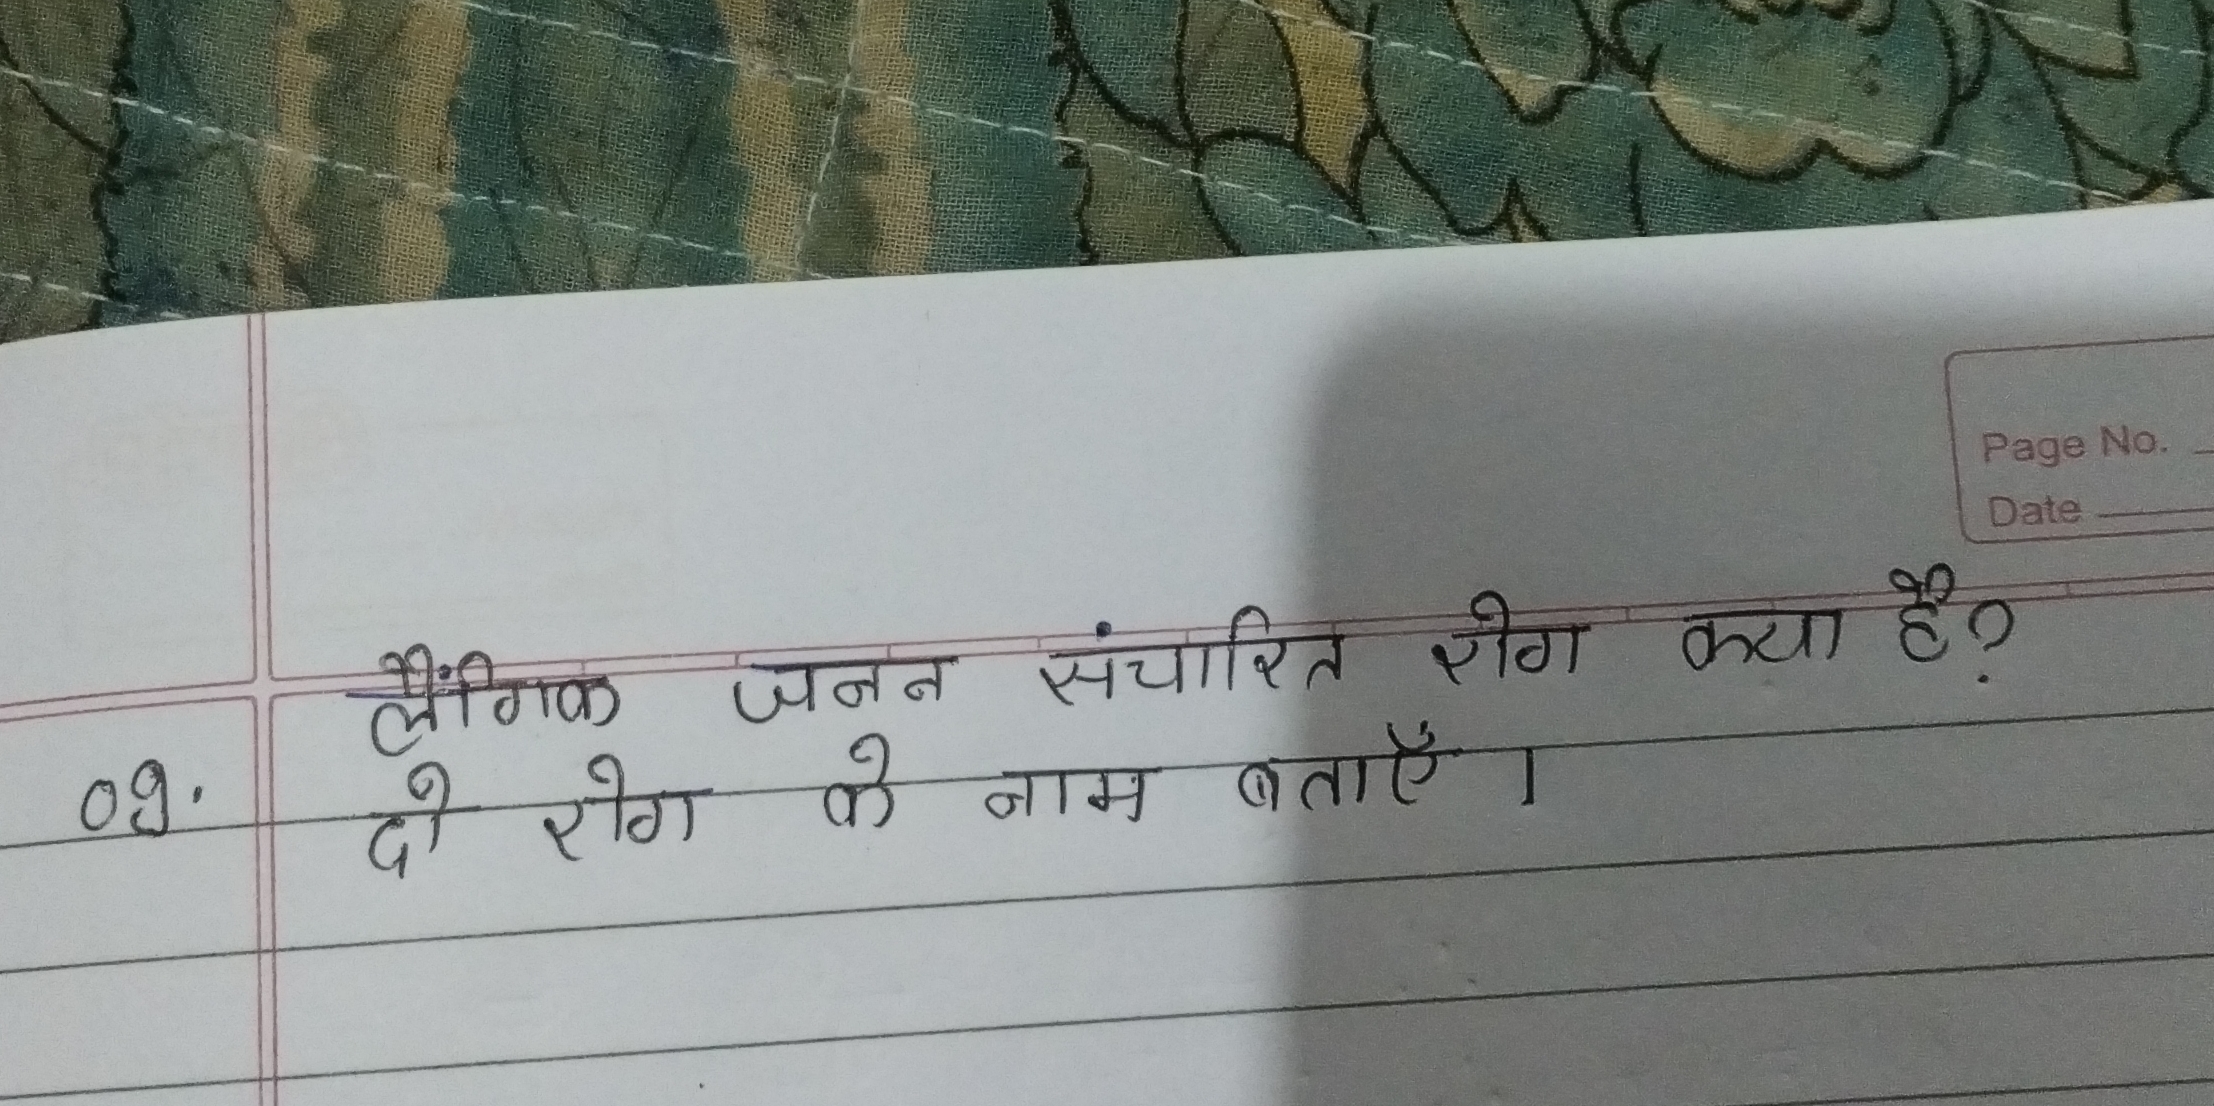 Page No.
Date
लैंगिक जनन संचारित रोग क्या है?
09. दो रोग के नाम बताएँ।